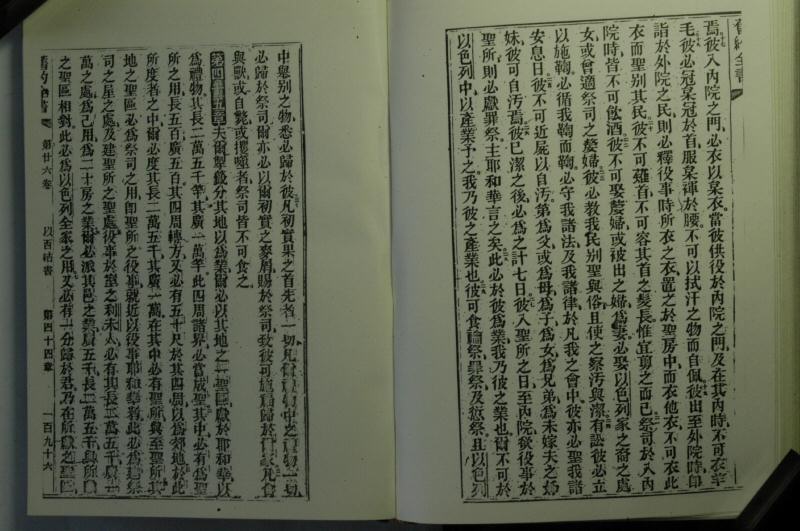 舊約全書
焉彼入內院之門必衣以枲衣當彼供役於內院之門及在其內時不可衣羊
毛彼必冠枲冠於首服枲褌於腰不可以拭汗之物而自佩彼出至外院時卽
詣於外院之民則必釋役事時所衣之衣置之於聖房中而衣他衣不可衣此
衣而聖别其民彼不可薙首不可容其首之髮長惟宜剪之而已祭司於入內
院時皆不可飲酒彼不可娶嫠婦或被出之婦爲妻必娶以色列家之裔之處
女或曾適祭司之嫠婦彼必敎我民别聖與俗且使之察汚與潔有訟彼必立
以施鞫必循我鞫而鞫必守我諸法及我諸律於凡我之會中彼亦必聖我諸
安息日彼不可近屍以自汚第爲父或爲母爲子爲女爲兄弟爲未嫁夫之姊
妹彼可自汚焉彼已潔之後必爲之計七日彼入聖所之日至內院欲役事於
聖所則必獻罪祭主耶和華言之矣此必於彼爲業我乃彼之業也爾不可於
以色列中以產業予之我乃彼之產業也彼可食論祭罪祭及愆祭且以色列
中舉别之物悉必歸於彼凡初實果之首先者一切凡
必歸於祭司爾亦必以爾初實之麥屑賜於祭司致彼可
與獸或自斃或攫噬者祭司皆不可食之
第四十五章夫爾掣籤分其地以爲業爾必以其地之一聖區獻於耶和華以
爲禮物其長二萬五千竿其廣一萬竿此四周諸界必當成聖其中必有爲聖
所之用長五百廣五百其四周轉方又必有五十尺於其四周以爲郊地於此
所度者之中爾必度其長二萬五千其廣一萬在其中必有聖所與至聖所其
地之聖區必爲祭司之用卽聖所之役事就近以役事耶和華者此必爲建祭
司之屋之處及建聖所之聖處役事於室之利未人必有其長二萬五千廣
萬之處爲己用爲二十房之業爾必派其邑之業廣五千長二萬五千與所獻
之聖區相對此必爲以色列全家之用又必有一分歸於君乃在所獻之聖區
舊約全書 第廿六卷 以西結書 第四十四章 一百九十六